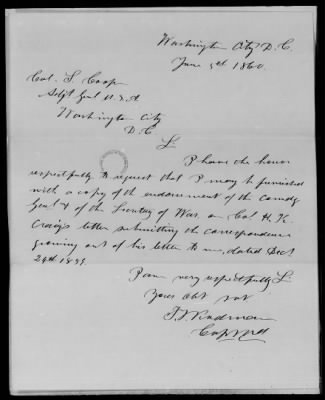 Washington City D.C.
June 5th 1860.
Col. S. Coop
Adjt Genl U.S.A
Washington City
D.C
Sr
I have the honor
respectfully to request that I may be furnished
with a copy of the endorsement of the comdg
Genl & of the Secretary of War, on Col H. K.
Craig's letter submitting the correspondence
growing out of his letter to me, dated Dect
24th 1859.
I am very respectfully Sr
Your obt svt